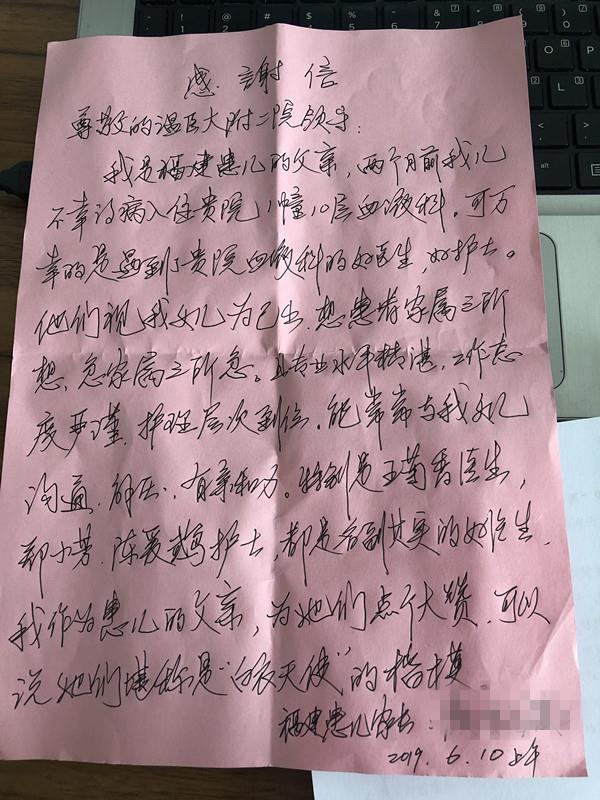 感謝信
尊敬的温医大附二院领导:
我是福建患儿的父亲,两个月前我儿
不幸诊病入住贵院11幢10层血液科。可万
幸的是遇到了贵院血液科的好医生,好护士。
他们视我女儿为己出,想患者家属之所
想,急家属之所急。且专业水平精湛,工作态
度严谨,护理层次到位,能常常与我女儿
沟通、解压,有亲和力。特别是王菊香医生,
郑小芳、陈爱鹤护士,都是名副其实的好医生。
我作为患儿的父亲,为她们点个大赞,可以
说她们堪称是“白衣天使”的楷模。
福建患儿家长
2019.6.10上午